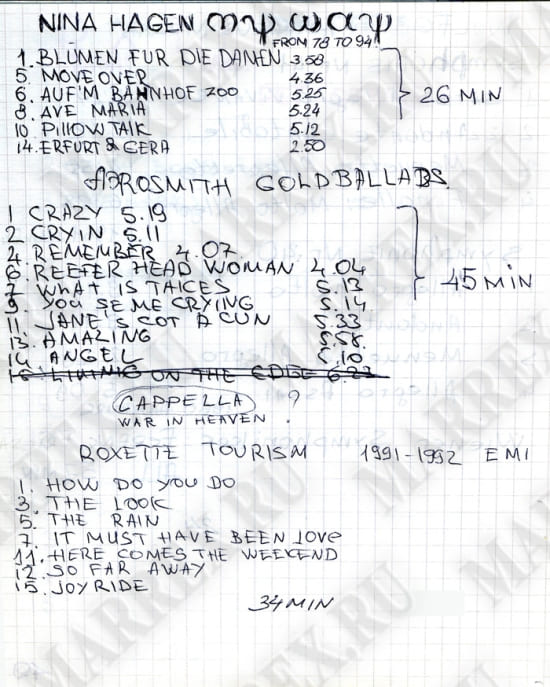 NINA HAGEN my way
FROM 78 TO 94
1. BLÜMEN FUR DIE DAMEN 3.58
5. MOVE OVER 4.36
6. AUF'M BAHNHOF ZOO 5.25
8. AVE MARIA 5.24
10 PillOW TAlK 5.12
14. ERFURT & GERA 2.50
26 MIN
AEROSMITH GOLDBALLADS.
1 CRAZY 5.19
2 CRYIN 5.11
4. REMEMBER 4.07.
6. REEFER HEAD WOMAN 4.04
7. WHAT IS TAICES 5.13
9. YOU SE ME CRYING 5.14
11. JANE'S GOT A GUN 5.33
13. AMAZING 5.58.
14 ANGEL 5.10
16. LIVING ON THE EDGE 6.23
45 MIN
CAPPELLA ?
WAR IN HEAVEN .
ROXETTE TOURISM 1991-1992 EMI
1. HOW DO YOU DO
3. THE LOOK
5. THE RAIN
7. IT MUST HAVE BEEN LOVe
11. HERE COMES THE WEEKEND
12. SO FAR AWAY
15. JOYRIDE
34 MIN
MARREX.RU